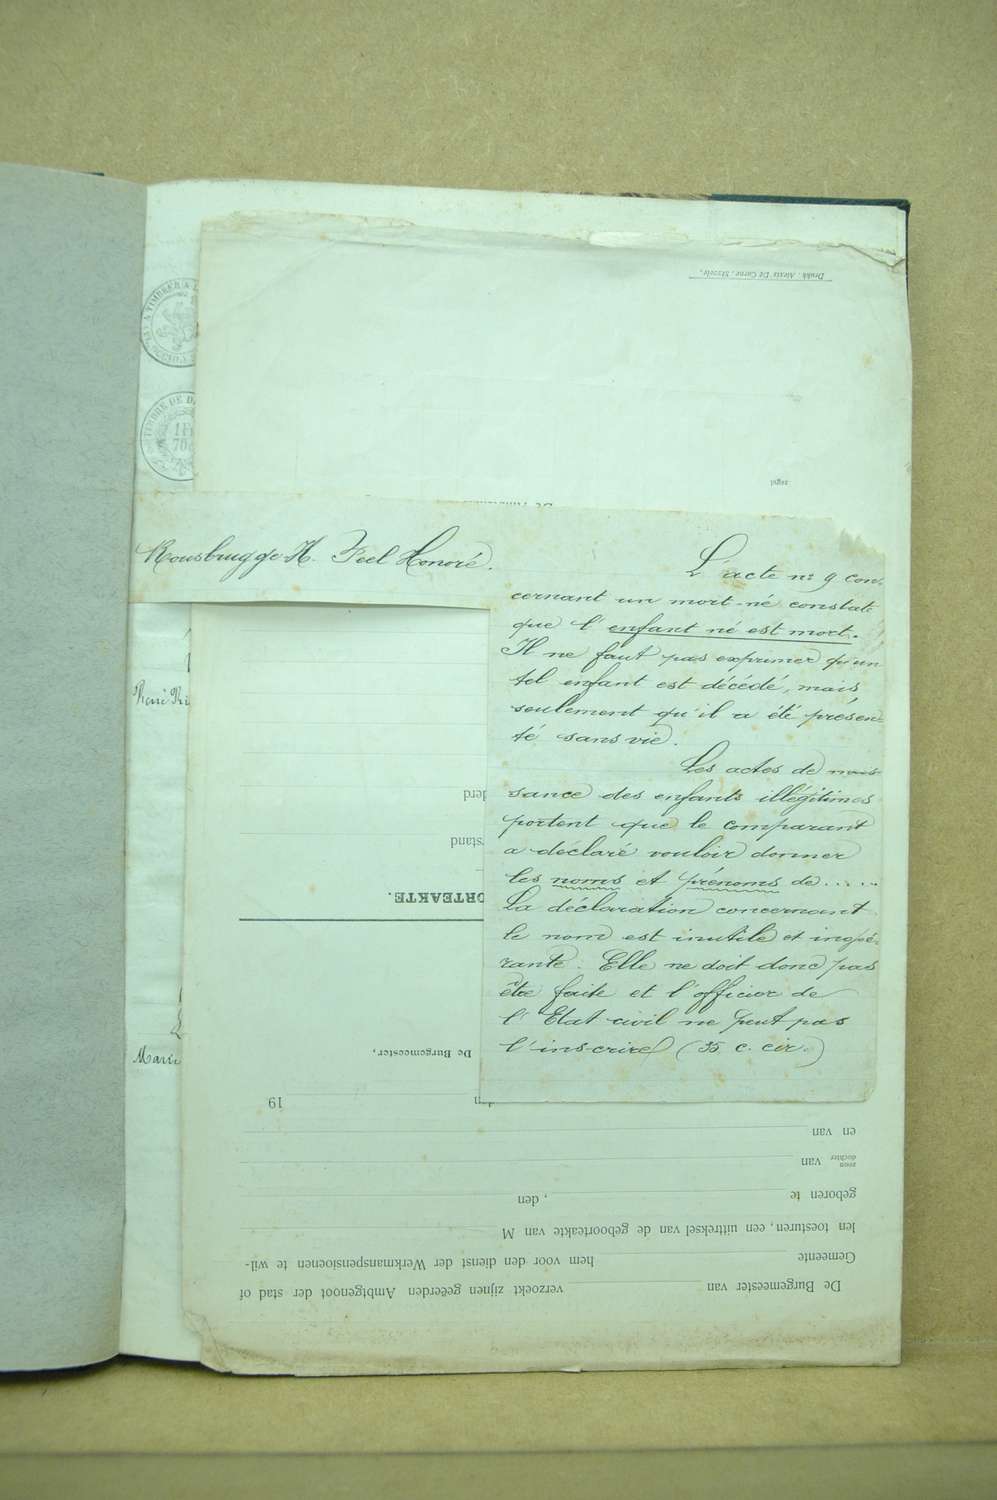 Drukk. Alexis De Carne, Stavele.
zegel
TIMBRE DE D
1 F
70
Rousbrugge H. Feel Honoré.
L'acte nº 9 con-
cernant un mort-né constate
que l'enfant né est mort.
Il ne faut pas exprimer qu'un
tel enfant est décédé, mais
seulement qu'il a été présen-
té sans vie.
Les actes de nais-
sance des enfants illégitimes
portent que le comparant
a déclaré vouloir donner
les noms et prénoms de .....
La déclaration concernant
le nom est inutile et inopé-
rante. Elle ne doit donc pas
être faite et l'officier de
l'Etat civil ne peut pas
l'inscrire (35 c. civ.)
Marie
derd
rstand
ORTEAKTE.
De Burgemeester,
den 19
en van
zoon
dochter van
geboren te , den
len toesturen, een uittreksel van de geboorteakte van M
Gemeente hem voor den dienst der Werkmanspensioenen te wil-
De Burgemeester van verzoekt zijnen geëerden Ambtgenoot der stad of